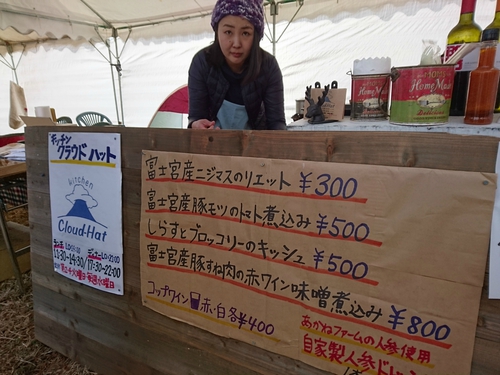 キッチン
クラウドハット
kitchen
Cloud-Hat
ランチ
ディナー
11:30-14:30/17:30-22:00
富士宮産ニジマスのリエット ¥300
富士宮産豚モツのトマト煮込み ¥500
しらすとブロッコリーのキッシュ ¥500
富士宮産豚すね肉の赤ワイン味噌煮込み ¥800
コップワイン 赤・白各¥400
あかねファームの人参使用
自家製人参ド
Home Made
Home Made